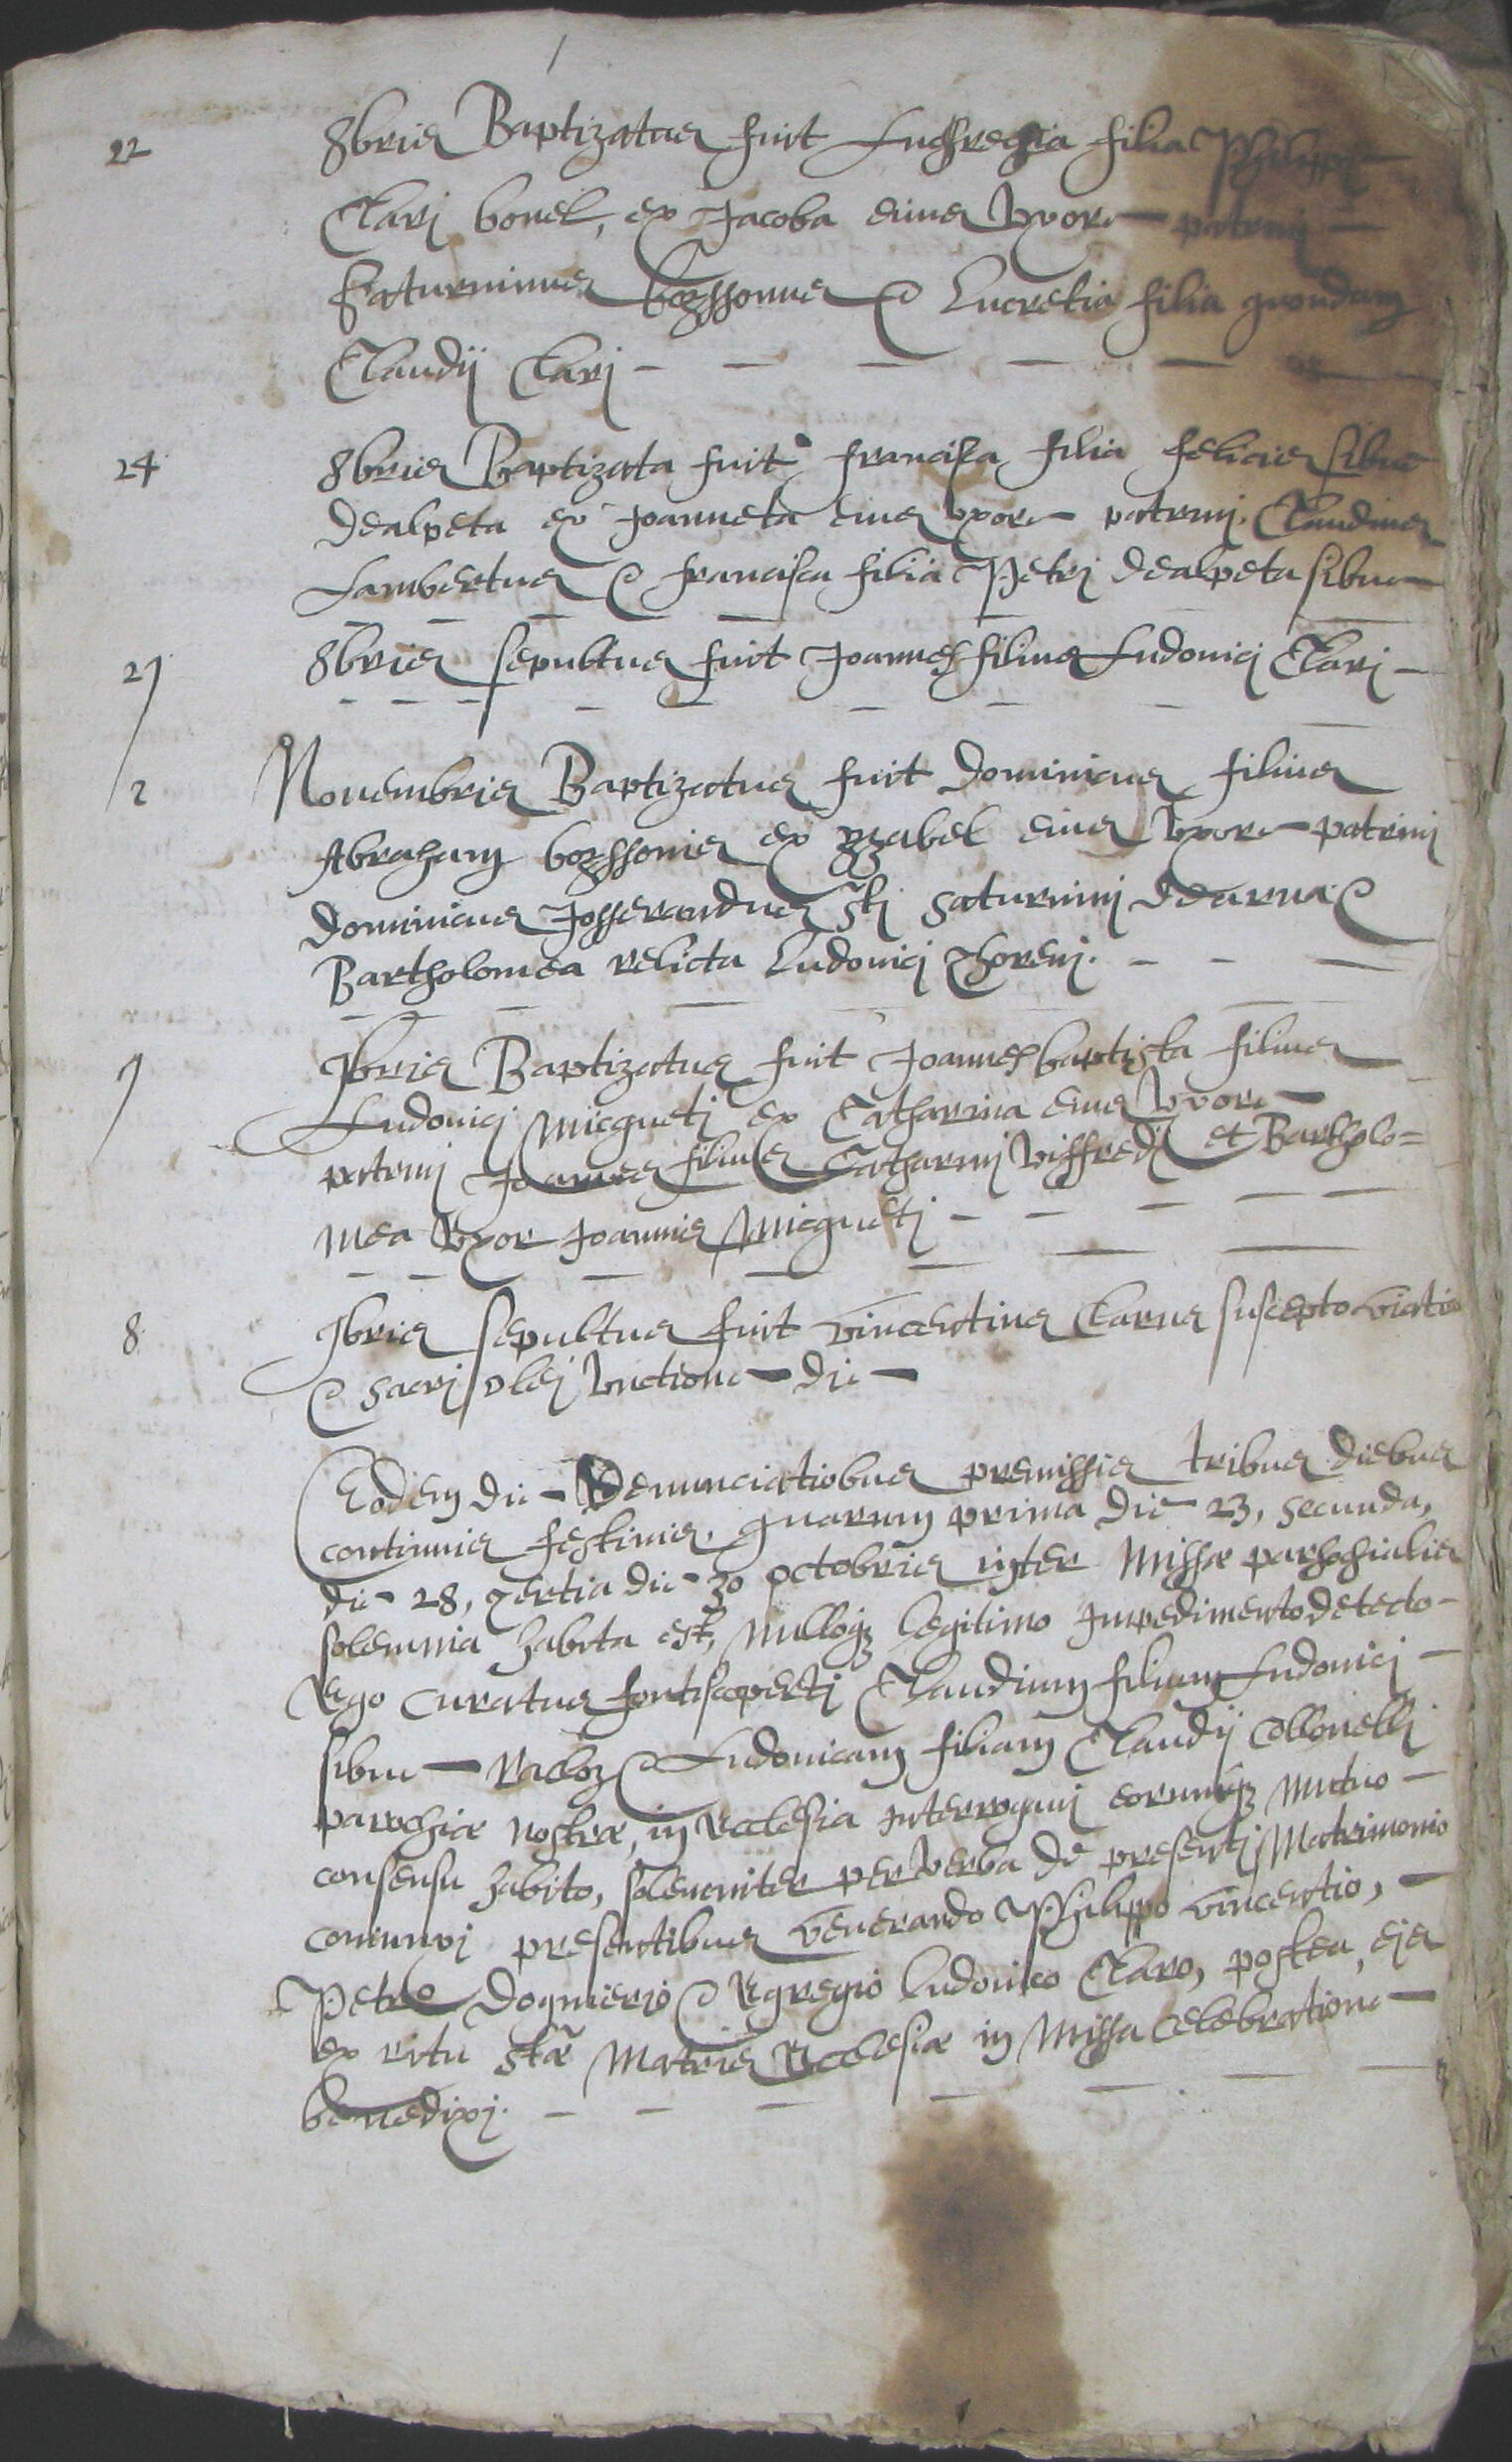 22 8bris Baptizatus fuit Luchresia filia Philippi
Clarj bonel, ex Jacoba eius Vxore patrinj
Saturninus bozssonus & Lucretia filia quondam
Claudij Clarj
24 8bris Baptizata fuit francisca filia felicis sibue
dealpeta ex Joanneta eius vxore patrinj Claudius
Lambertus & francisca filia Petrj dealpeta sibue
27 8bris sepultus fuit Joannes filius Ludouicj Clarj
2 Nouembris Baptizatus fuit dominicus filius
Abraham bozssonis ex yzabel eius Vxore patrinj
dominicus Josserandus Stj saturninj dearua &
Bartholomea relicta Ludouicj
7 9bris Baptizatus fuit Joannes baptista filius
Ludouicj Micquetj ex Catharina eius Vxore
patrinj Joannes filius Catharinj Viffredj et Bartholo=
mea Vxor Joannis Micquetj
8 9bris sepultus fuit vincentius Clarus suscepto viatico
& sacrj olej Vnctione die
Eodem die Denunciatiobus premissis tribus diebus
continuis festiuis, quarum prima die 23, secunda,
die 28, tertia die 30 octobris inter Missæ parhochialis
solemnia habita est, Nulloq; legitimo Impedimento detecto
Ego Curatus fontiscopertj Claudium filium Ludouicj
sibue & Ludouicam filiam Claudij Collonellj
parochiæ nostræ, in Ecclesia Interrogauj eorumq; mutuo
consensu habito, solemniter per Verba de presentj Matrimonio
coniunxj presentibus Venerando Philippo vincentio,
Petro dogmerio & Egregio ludouico Claro, postea, eis
ex ritu stæ Matris Ecclesiæ in Missa Celebratione
benedixj.